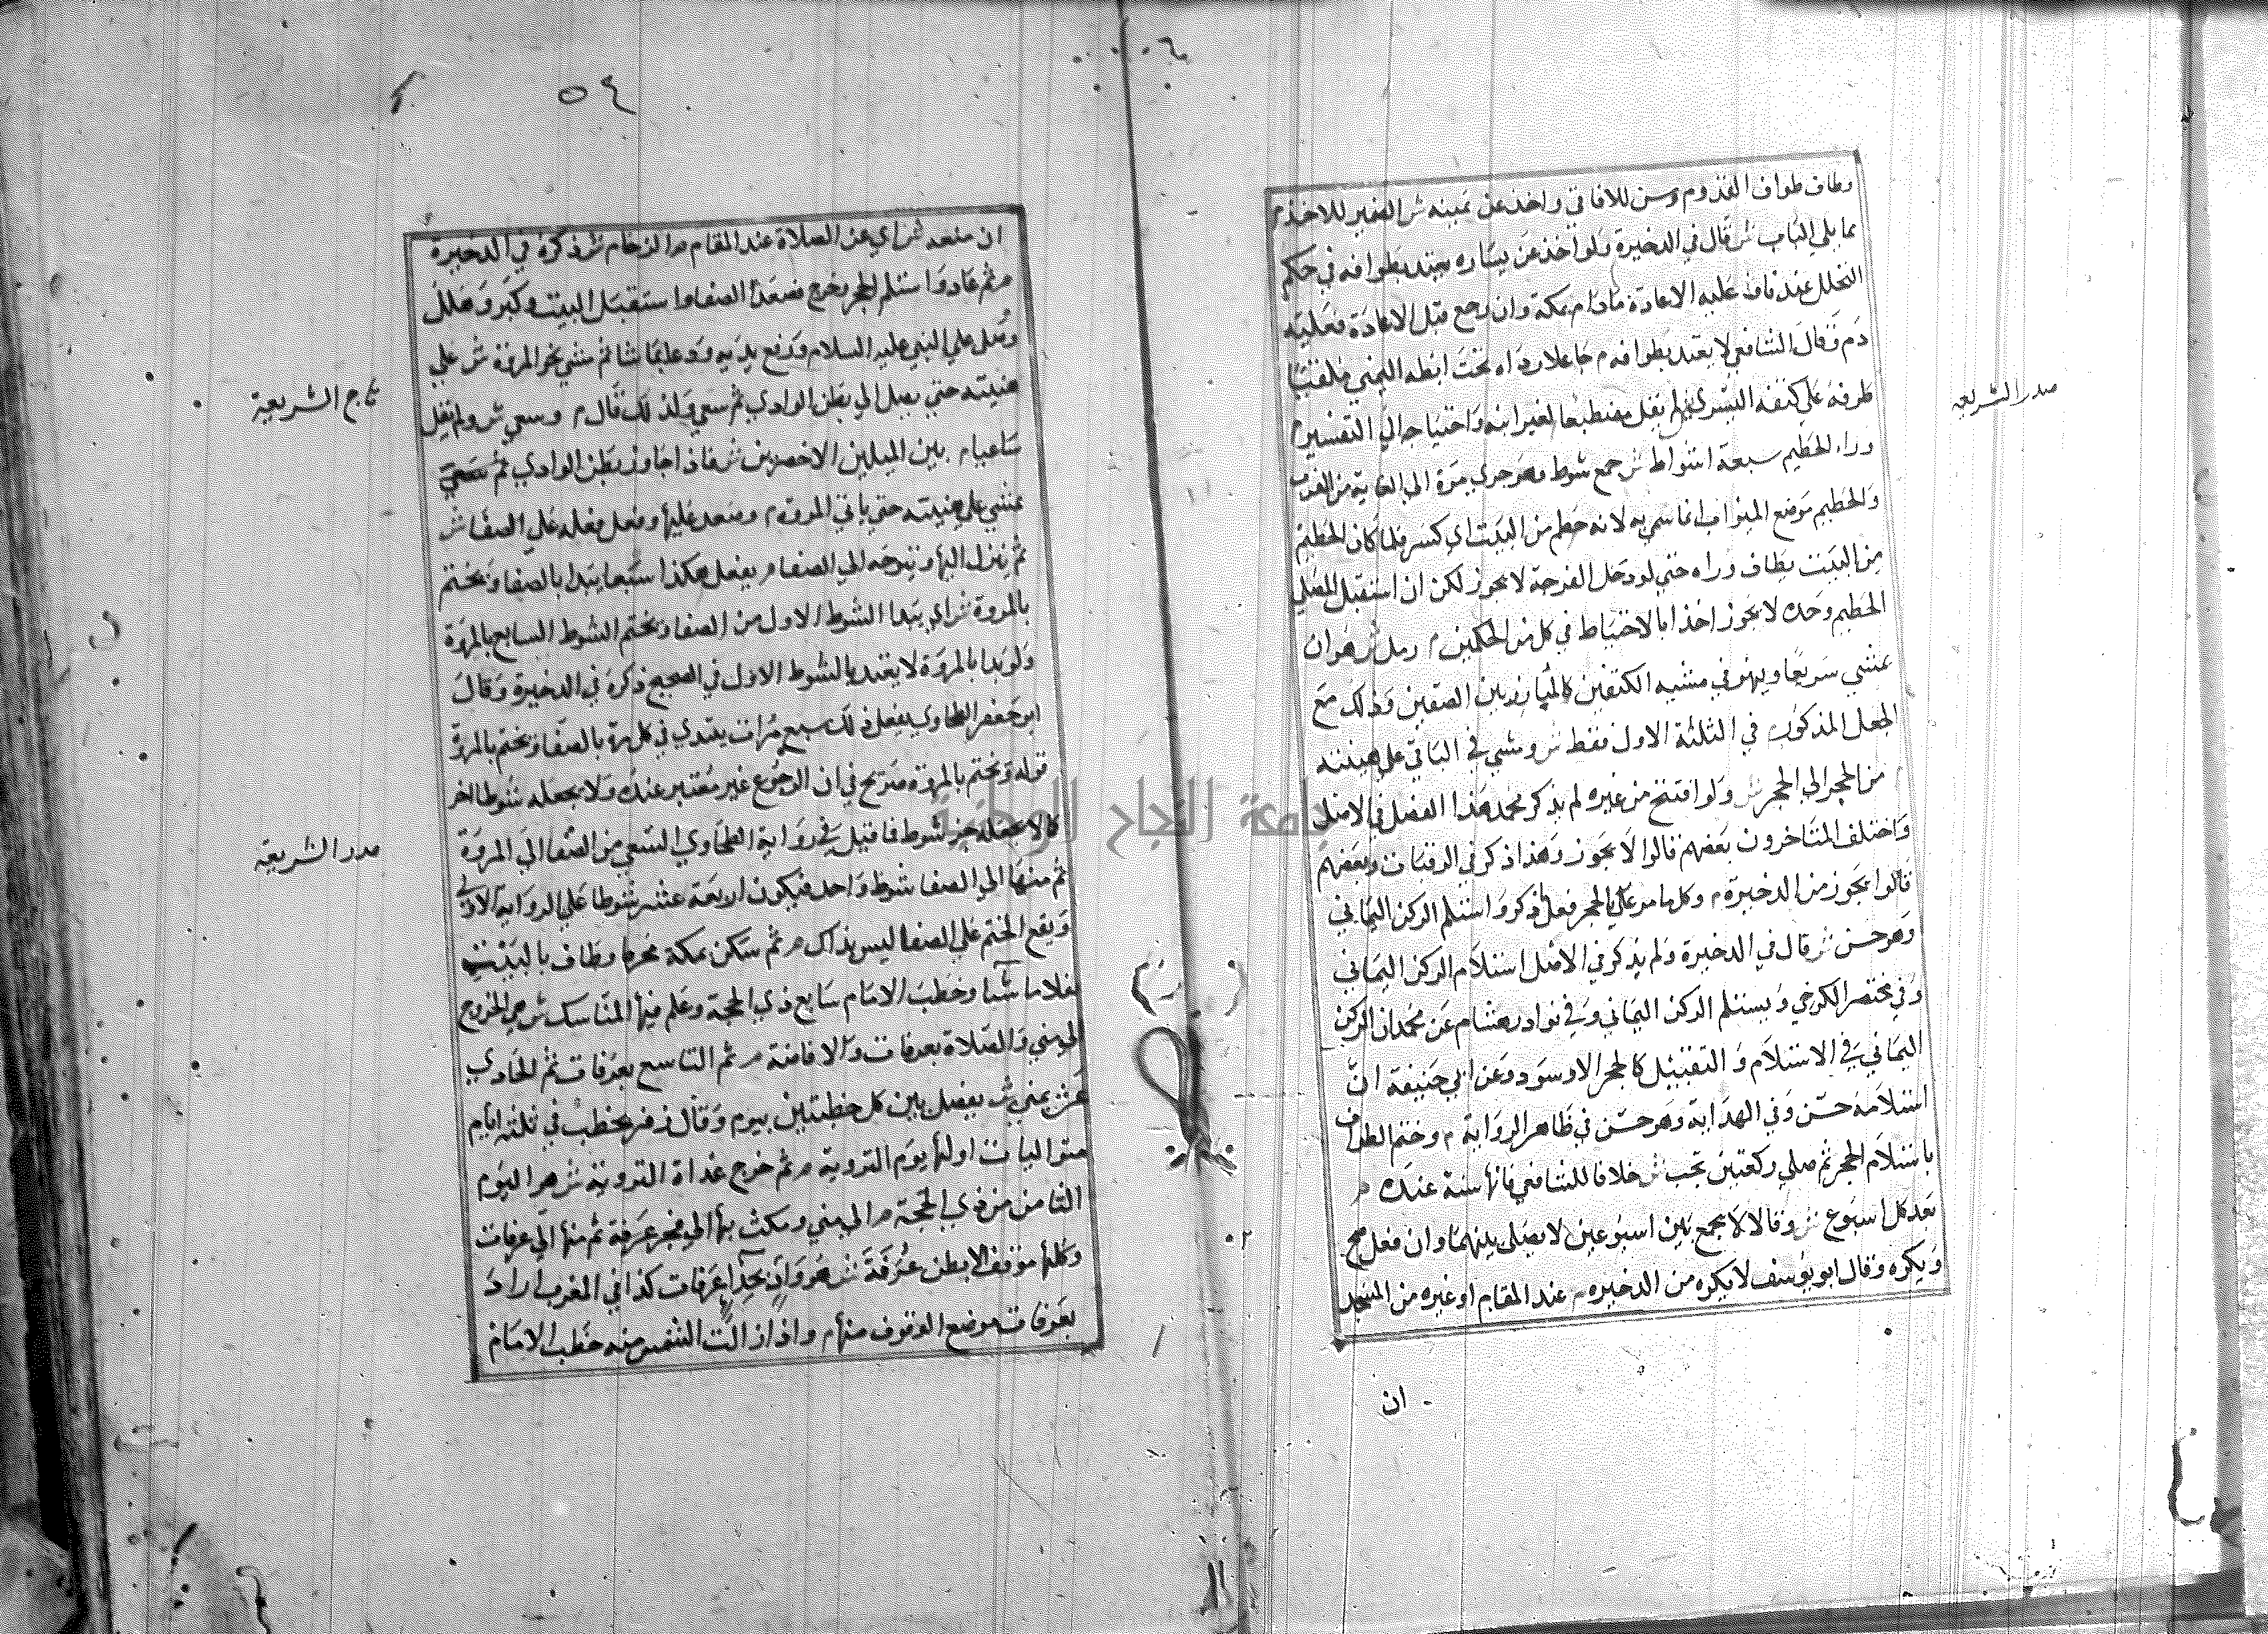 وطاف طواف القدوم وسن للافاقي واخذ عن يمينه ش الضمير للاخذ م
مما يلي الباب ش قال في الدخيرة ولو اخذ عن يساره يعتد بطوافه في حكم
التحلل عندنا وعليه الاعادة مادام بمكة وان رجع قبل الاعادة فعليه
دم وقال الشافعي لا يعتد بطوافه م جاعلا رداه تحت ابطه اليمني ملقيا
طرفه على كتفه اليسري ش لم يقل مضطبعا لغيرابته واحتياجه الي التفسير م
صدر الشريعة
وراء الحطيم سبعة اشواط ش جمع شوط وهو جري مرة الي الغاية من المغرب
والحطيم موضع الميزاب انما سمي به لانه حطم من البيت اي كسر فلما كان الحطيم
من البيت يطاف وراه حتي لو دخل الفرجة لا يجوز لكن ان استقبل المصلي
الحطيم وحده لا يجوز اخذا بالاحتياط في كل من الحكمين م رمل ش هو ان
يمشي سريعا ويهز في مشيه الكتفين كالمبارز بين الصفين وذلك مع
الجعل المذكور م في الثلثة الاول فقط ش ومشي في الباقي على هينته
من الحجر الي الحجر ش ولو افتتح من غيره لم يذكر محمد هذا الفصل في الاصل
واختلف المتاخرون بعضهم قالوا لا يجوز وهذا ذكر في الرقيات وبعضهم
قالوا يجوز من الدخيرة م وكلما مر على الحجر فعل ما ذكر واستلم الركن اليماني
وهو حسن ش قال في الدخيرة ولم يذكر في الاصل استلام الركن اليماني
وفي مختصر الكرخي ويستلم الركن اليماني وفي نوادر هشام عن محمد ان الركن
اليماني في الاستلام والتقبيل كالحجر الاسود وعن ابي حنيفة ان
استلامه حسن وفي الهداية وهو حسن في ظاهر الرواية م وختم الطواف
باستلام الحجر ثم صلي ركعتين تجب ش خلافا للشافعي فانها سنة عنده م
بعد كل اسبوع ش وقالا لا يجمع بين اسبوعين لا يصلى بينهما وان فعل صح
ويكره وقال ابو يوسف لا يكره من الدخيره م عند المقام او غيره من المسجد
ان
٥٤
ان منعه ش اي عن الصلاة عند المقام م الزحام ش ذكره في الدخيرة
م ثم عاد واستلم الحجر وخرج فصعد الصفا واستقبل البيت وكبر وهلل
وصلى علي النبي عليه السلام ورفع يديه ودعا بما شا ثم مشي نحو المروة ش علي
هينته حتي يصل الي بطن الوادي ثم سعي ولذلك قال م وسعي ش ولم يقل
تاج الشريعة
ساعيا م بين الميلين الاخضرين ش فاذا جاوز بطن الوادي ثم
يمشي على هينته حتي ياتي المروة م وصعد عليها وفعل فعله علي الصفا ش
ثم ينزل اليها ويتوجه الي الصفا م يفعل هكذا سبعا يبدا بالصفا ويختم
بالمروة ش اي يبدا الشوط الاول من الصفا ويختم الشوط السابع بالمروة
ولو بدا بالمروة لا يعتد بالشوط الاول في الصحيح ذكره في الدخيرة وقال
ابو جعفر الطحاوي يفعل ذلك سبع مرات يبتدي في كل مرة بالصفا ويختم بالمروة
قوله ويختم بالمروة صريح في ان الرجوع غير معتبر عنده ولا يجعله شوطا اخر
كما لا يجعله جز شوط فما قيل في رواية الطحاوي السعي من الصفا الي المروة
صدر الشريعة
ثم منها الي الصفا شوط واحد فيكون اربعة عشر شوطا علي الرواية الاولي
ويقع الختم علي الصفا ليس بذاك م ثم سكن بمكة محرما وطاف بالبيت
نفلا ما شا وخطب الامام سابع ذي الحجة وعلم فيها المناسك ش هي الخروج
الي مني والصلاة بعرفات والافاضة م ثم التاسع بعرفات ثم الحادي
عشر بمني ش يفصل بين كل خطبتين بيوم وقال زفر يخطب في ثلثة ايام
متواليات اولها يوم التروية م ثم خرج غداة التروية ش هو اليوم
الثامن من ذي الحجة م الي مني ومكث بها الي فجر عرفة ثم منها الي عرفات
وكلها موقف الا بطن عرنة ش هو واد بحذا عرفات كذا في المغرب اراد
بعرفات موضع الوقوف منها م واذا زالت الشمس منه خطب الامام
جامعة النجاح الوطنية